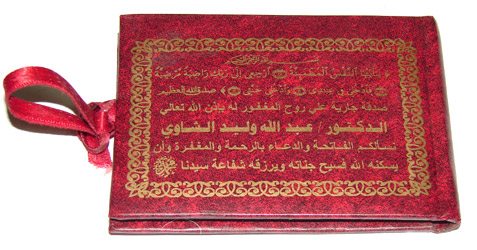 بسم الله الرحمن الرحيم
﴿ يا أيتها النفس المطمئنة ارجعي إلى ربك راضية مرضية
فادخلي في عبادي وادخلي جنتي ﴾ صدق الله العظيم
صدقة جارية علي روح المغفور له بإذن الله تعالي
الدكتور / عبد الله وليد
نسألكم الفاتحة والدعاء بالرحمة والمغفرة وأن
يسكنه الله فسيح جناته ويرزقه شفاعة سيدنا